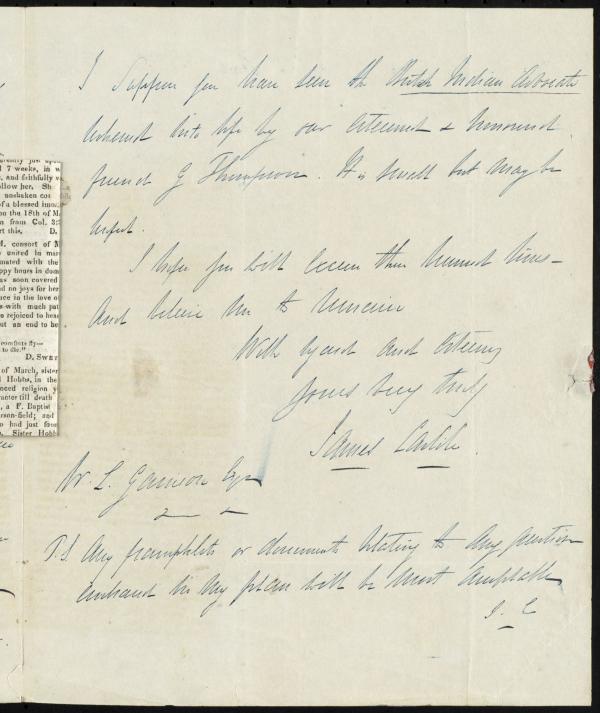 I suppose you have seen the British Indian Advocate
ushered into life by our esteemed & honoured
friend G Thompson. It is small but may be
useful.
I hope you will excuse these hurried lines—
And believe me to remain
With regard and esteem
Yours very truly
James
W. L. Garrison Esqr
P.S. Any pamphlets or documents relating to any question
embraced in my plan will be most acceptable
J. C
7 weeks, in
and faithfully
llow her. Sh
unshaken
of a blessed
on the 18th of M
n from Col. 3:
rt this. D.
M. consort of M
united in mar
mated with the
ppy hours in dom
as soon covered
d no joys for her
ace in the love o
s with much pat
e rejoiced to hea
ut an end to he
comforts fly—
to die."
D. SWET
of March, sister
Hobbs, in the
nced religion y
racter till death
, a F. Baptist
rson-field; and
had just
. Sister Hobb